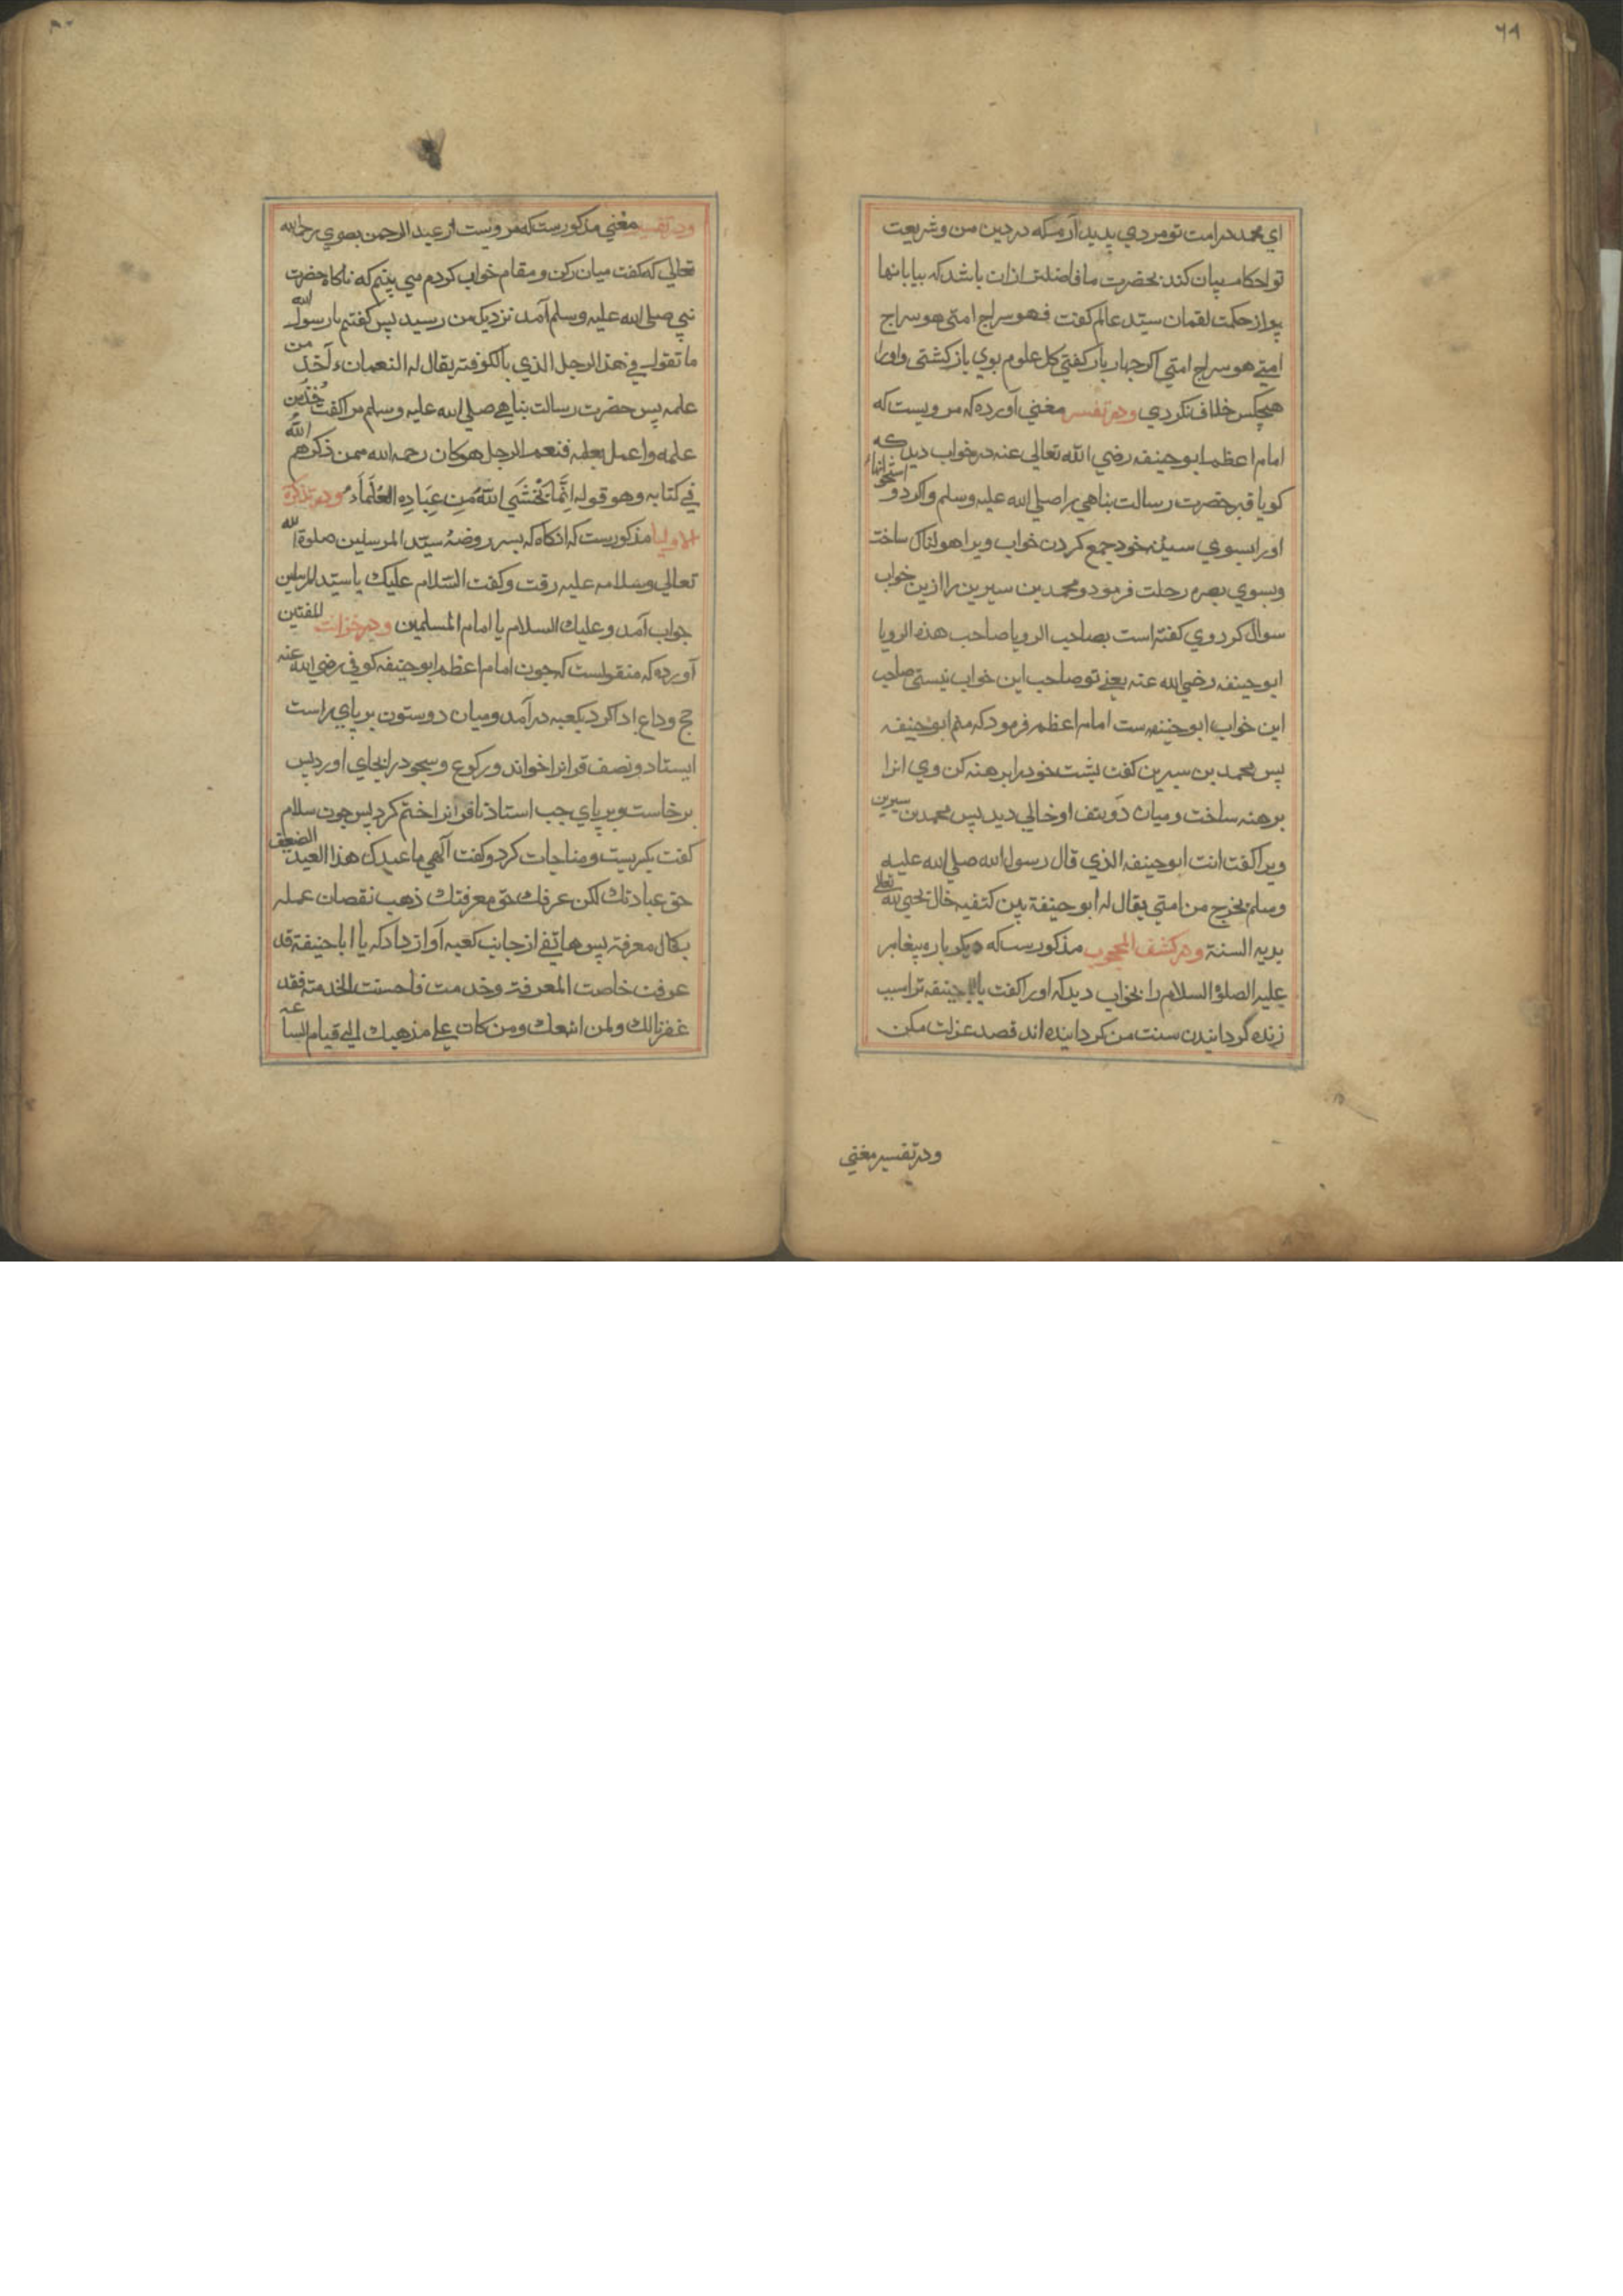 ٦٩
اي محمد در امت تو مردي پديد آرم که در دين من و شريعت
تو احکام بيان کند بحضرت ما فاضلتر ازان باشد که بيابانها
پر از حکمت لقمان سيّد عالم کفت فهو سراج امتي هو سراج
امتي هو سراج امتي اکر چهار بار کفتي کل علوم بوي باز کشتي و اورا
هيچکس خلاف نکردي ودر تفسير مغني آورده که مرويست که
امام اعظم ابو حنيفه رضي الله تعالی عنه در خواب ديد که
کويا قبر حضرت رسالت بناهي را صلي الله عليه وسلم واکرد و استخوانهاء
اورا بسوي سينهٔ خود جمع کردن خواب ويرا هولناک ساخت
وبسوي بصره رحلت فرمود و محمد بن سيرين را ازين خواب
سوال کرد وي کفته است بصاحب الرويا صاحب هذه الرويا
ابو حنيفه رضي الله عنه يعني تو صاحب اين خواب نيستي صاحب
اين خواب ابو حنيفه ست امام اعظم فرمود که منم ابو حنيفه
پس محمد بن سيرين کفت پشت خود را برهنه کن وي انرا
برهنه ساخت و ميان دو کتف او خالي ديد پس محمد بن سيرين
ويرا کفت انت ابو حنيفه الذي قال رسول الله صلي الله عليه
وسلم يخرج من امتي يقال له ابو حنيفة بين کتفيه خال يحيي الله تعالی
بديه السنة ودر کشف المحجوب مذکور ست که ديکر باره پيغامبر
عليه الصلوة السلام را بخواب ديد که اورا کفت يا ابا حنيفه ترا سبب
زنده گردانيدن سنت من کردانيده اند قصد عزلت مکن
ودر تفسير مغني
ودر تفسير مغني مذکور ست که مرويست از عبد الرحمن بصري رحمه الله
تعالي که کفت ميان رکن و مقام خواب کردم مي بينم که ناکاه حضرت
نبي صلي الله عليه وسلم آمد نزديک من رسيد پس کفتم يا رسول الله
ما تقول في هذا الرجل الذي بالکوفة يقال له النعمان ءآخذ من
علمه پس حضرت رسالت بناهي صلي الله عليه وسلم مرا کفت خُذ من
علمه واعمل بعلمه فنعم الرجل هو کان رحمه الله ممن ذکرهم الله
في کتابه وهو قوله اِنَّمَا يَخْشَي اللّٰهَ مِن عِبَادِهِ العُلَمَاءُ ودر تذکرة
الاوليا مذکور ست که انکاه که بسر روضهٔ سيّد المرسلين صلوة الله
تعالي وسلامه عليه رفت و کفت السّلام عليک يا سيّد المرسلين
جواب آمد وعليک السلام يا امام المسلمين ودر خزانت المفتين
آورده که منقولست که چون امام اعظم ابو حنيفه کوفي رضي الله عنه
حج وداع ادا کرد بکعبه در آمد و ميان دو ستون بر پاي راست
ايستاد و نصف قرانرا خواند و رکوع و سجود در انجاي اورد پس
برخاست و بر پاي چپ استاد تا قرانرا ختم کرد پس چون سلام
کفت بکريست و مناجات کرد و کفت آلهي ما عبدک هذا العبد الضعيف
حق عبادتک لکن عرفک حق معرفتک ذهب نقصان عمله
بکمال معرفته پس هاتفي از جانب کعبه آواز داد که يا ابا حنيفة قد
عرفت خاصت المعرفة وخدمت فاحسنت الخدمته فقد
غفرنا لک ولمن اتبعک ومن کان علي مذهبک الي قيام الساعة